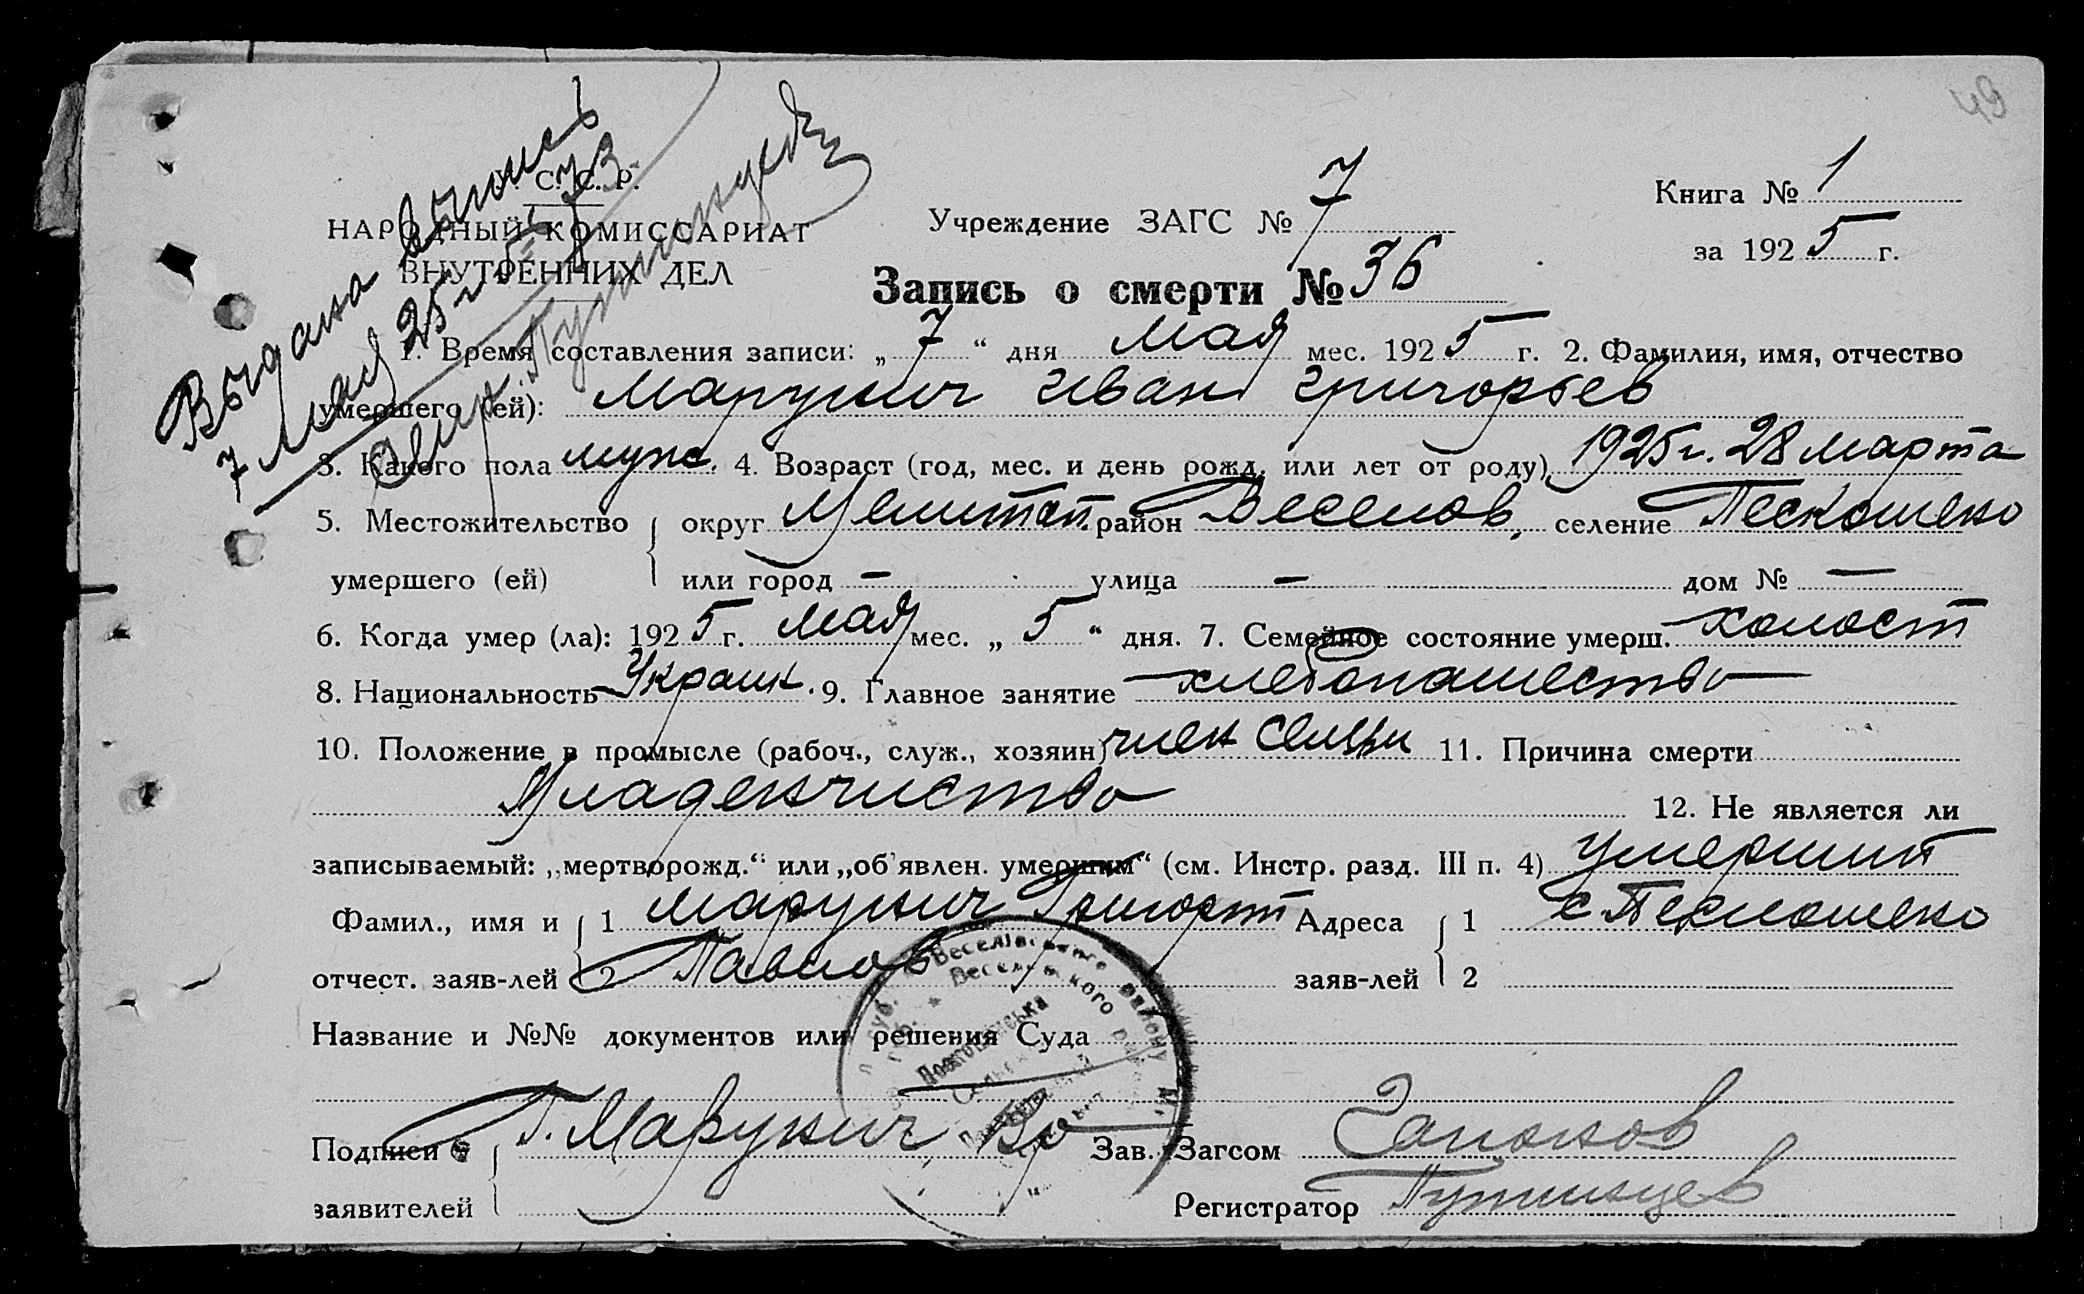 49
Выдана выпись
7 Мая 25 г. № 73
С. С. Р.
НАРОДНЫЙ КОМИССАРИАТ
ВНУТРЕННИХ ДЕЛ
Учреждение ЗАГС № 7
Книга № 1
за 1925 г.
Запись о смерти № 36
1. Время составления записи: „ 7 “ дня мая мес. 1925 г. 2. Фамилия, имя, отчество
умершего (ей): Марунич Иван Григорьев
3. Какого пола муж. 4. Возраст (год, мес. и день рожд. или лет от роду) 1925 г. 28 марта
5. Местожительство округ Мелитоп. район Веселов. селение Пескошено
умершего (ей) или город — улица — дом № —
6. Когда умер (ла): 1925 г. мая мес. „ 5 “ дня. 7. Семейное состояние умерш. холост
8. Национальность Украин. 9. Главное занятие хлебопашество
10. Положение в промысле (рабоч., служ., хозяин) член семьи 11. Причина смерти
Младенчиство
12. Не является ли
записываемый: „мертворожд.“ или „об'явлен. умершим“ (см. Инстр. разд. III п. 4) умерший
Фамил., имя и 1 Марунич Григорий Адреса 1 с. Пескошено
отчест. заяв-лей 2 Павлов заяв-лей 2
Название и №№ документов или решения Суда
Подписи Г. Марунич Зав. Загсом
заявителей Регистратор Путинцев
Веселівського району